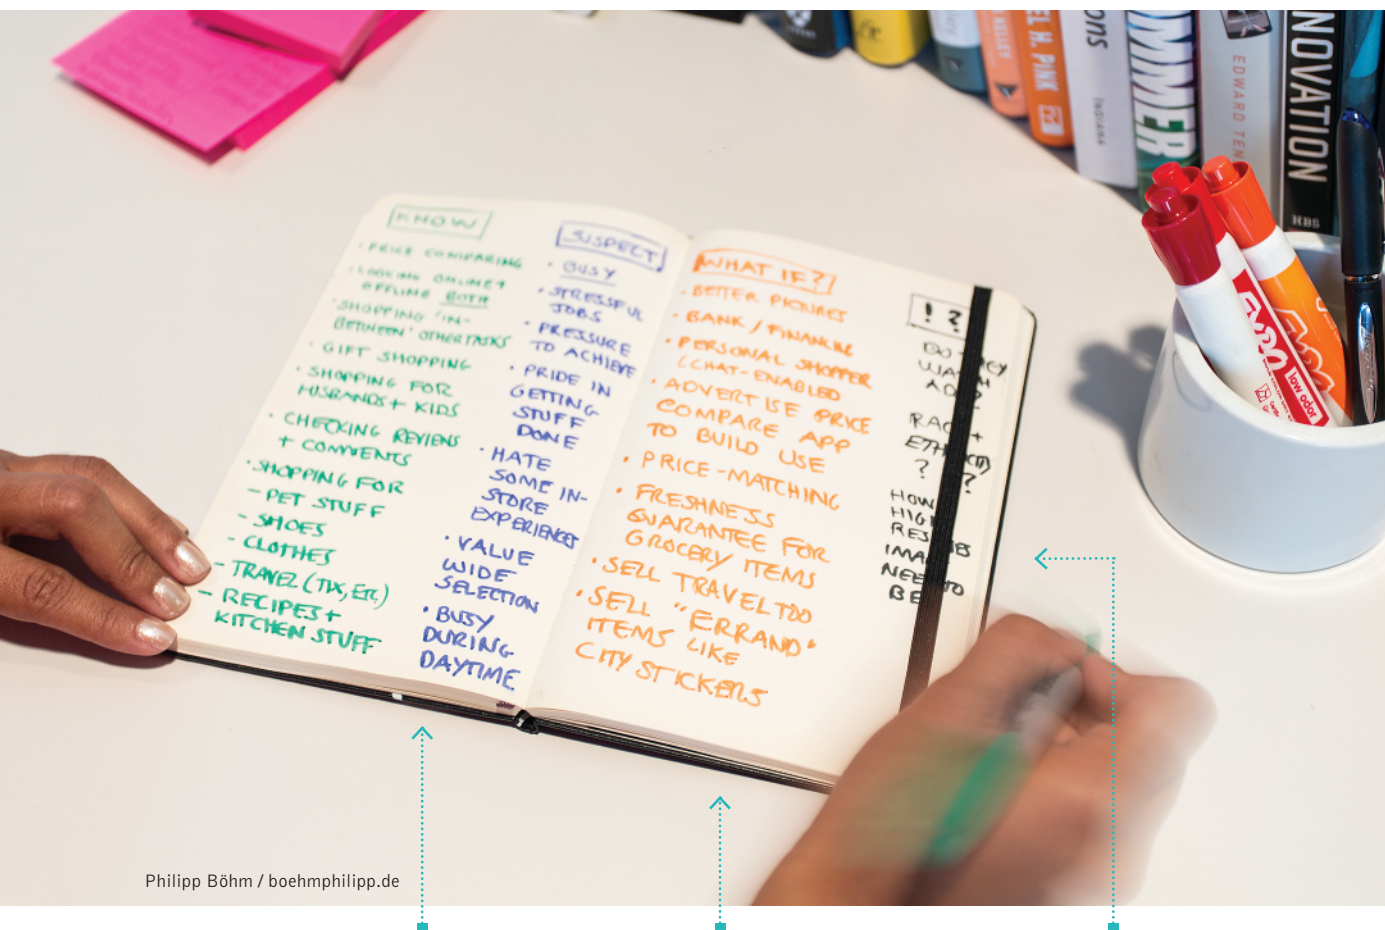 KNOW
• PRICE COMPARING
• LOOKING ONLINE +
OFFLINE BOTH
• SHOPPING 'IN-
BETWEEN' OTHER TASKS
• GIFT SHOPPING
• SHOPPING FOR
HUSBANDS + KIDS
• CHECKING REVIEWS
+ COMMENTS
• SHOPPING FOR
- PET STUFF
- SHOES
- CLOTHES
- TRAVEL (TIX, ETC.)
- RECIPES +
KITCHEN STUFF
SUSPECT
• BUSY
• STRESSFUL
JOBS
• PRESSURE
TO ACHIEVE
• PRIDE IN
GETTING
STUFF
DONE
• HATE
SOME IN-
STORE
EXPERIENCES
• VALUE
WIDE
SELECTION
• BUSY
DURING
DAYTIME
WHAT IF?
• BETTER PICTURES
• BANK / FINANCING
• PERSONAL SHOPPER
(CHAT-ENABLED
• ADVERTISE PRICE
COMPARE APP
TO BUILD USE
• PRICE-MATCHING
• FRESHNESS
GUARANTEE FOR
GROCERY ITEMS
• SELL TRAVEL TOO
• SELL "ERRAND"
ITEMS LIKE
CITY STICKERS
! ?
HOW
NEED TO
BE
KELLEY
EL H. PINK
ons
INDIANA
MMER
EDWARD TEN
NOVATION
HBS
EXPO
low odor
Philipp Böhm / boehmphilipp.de